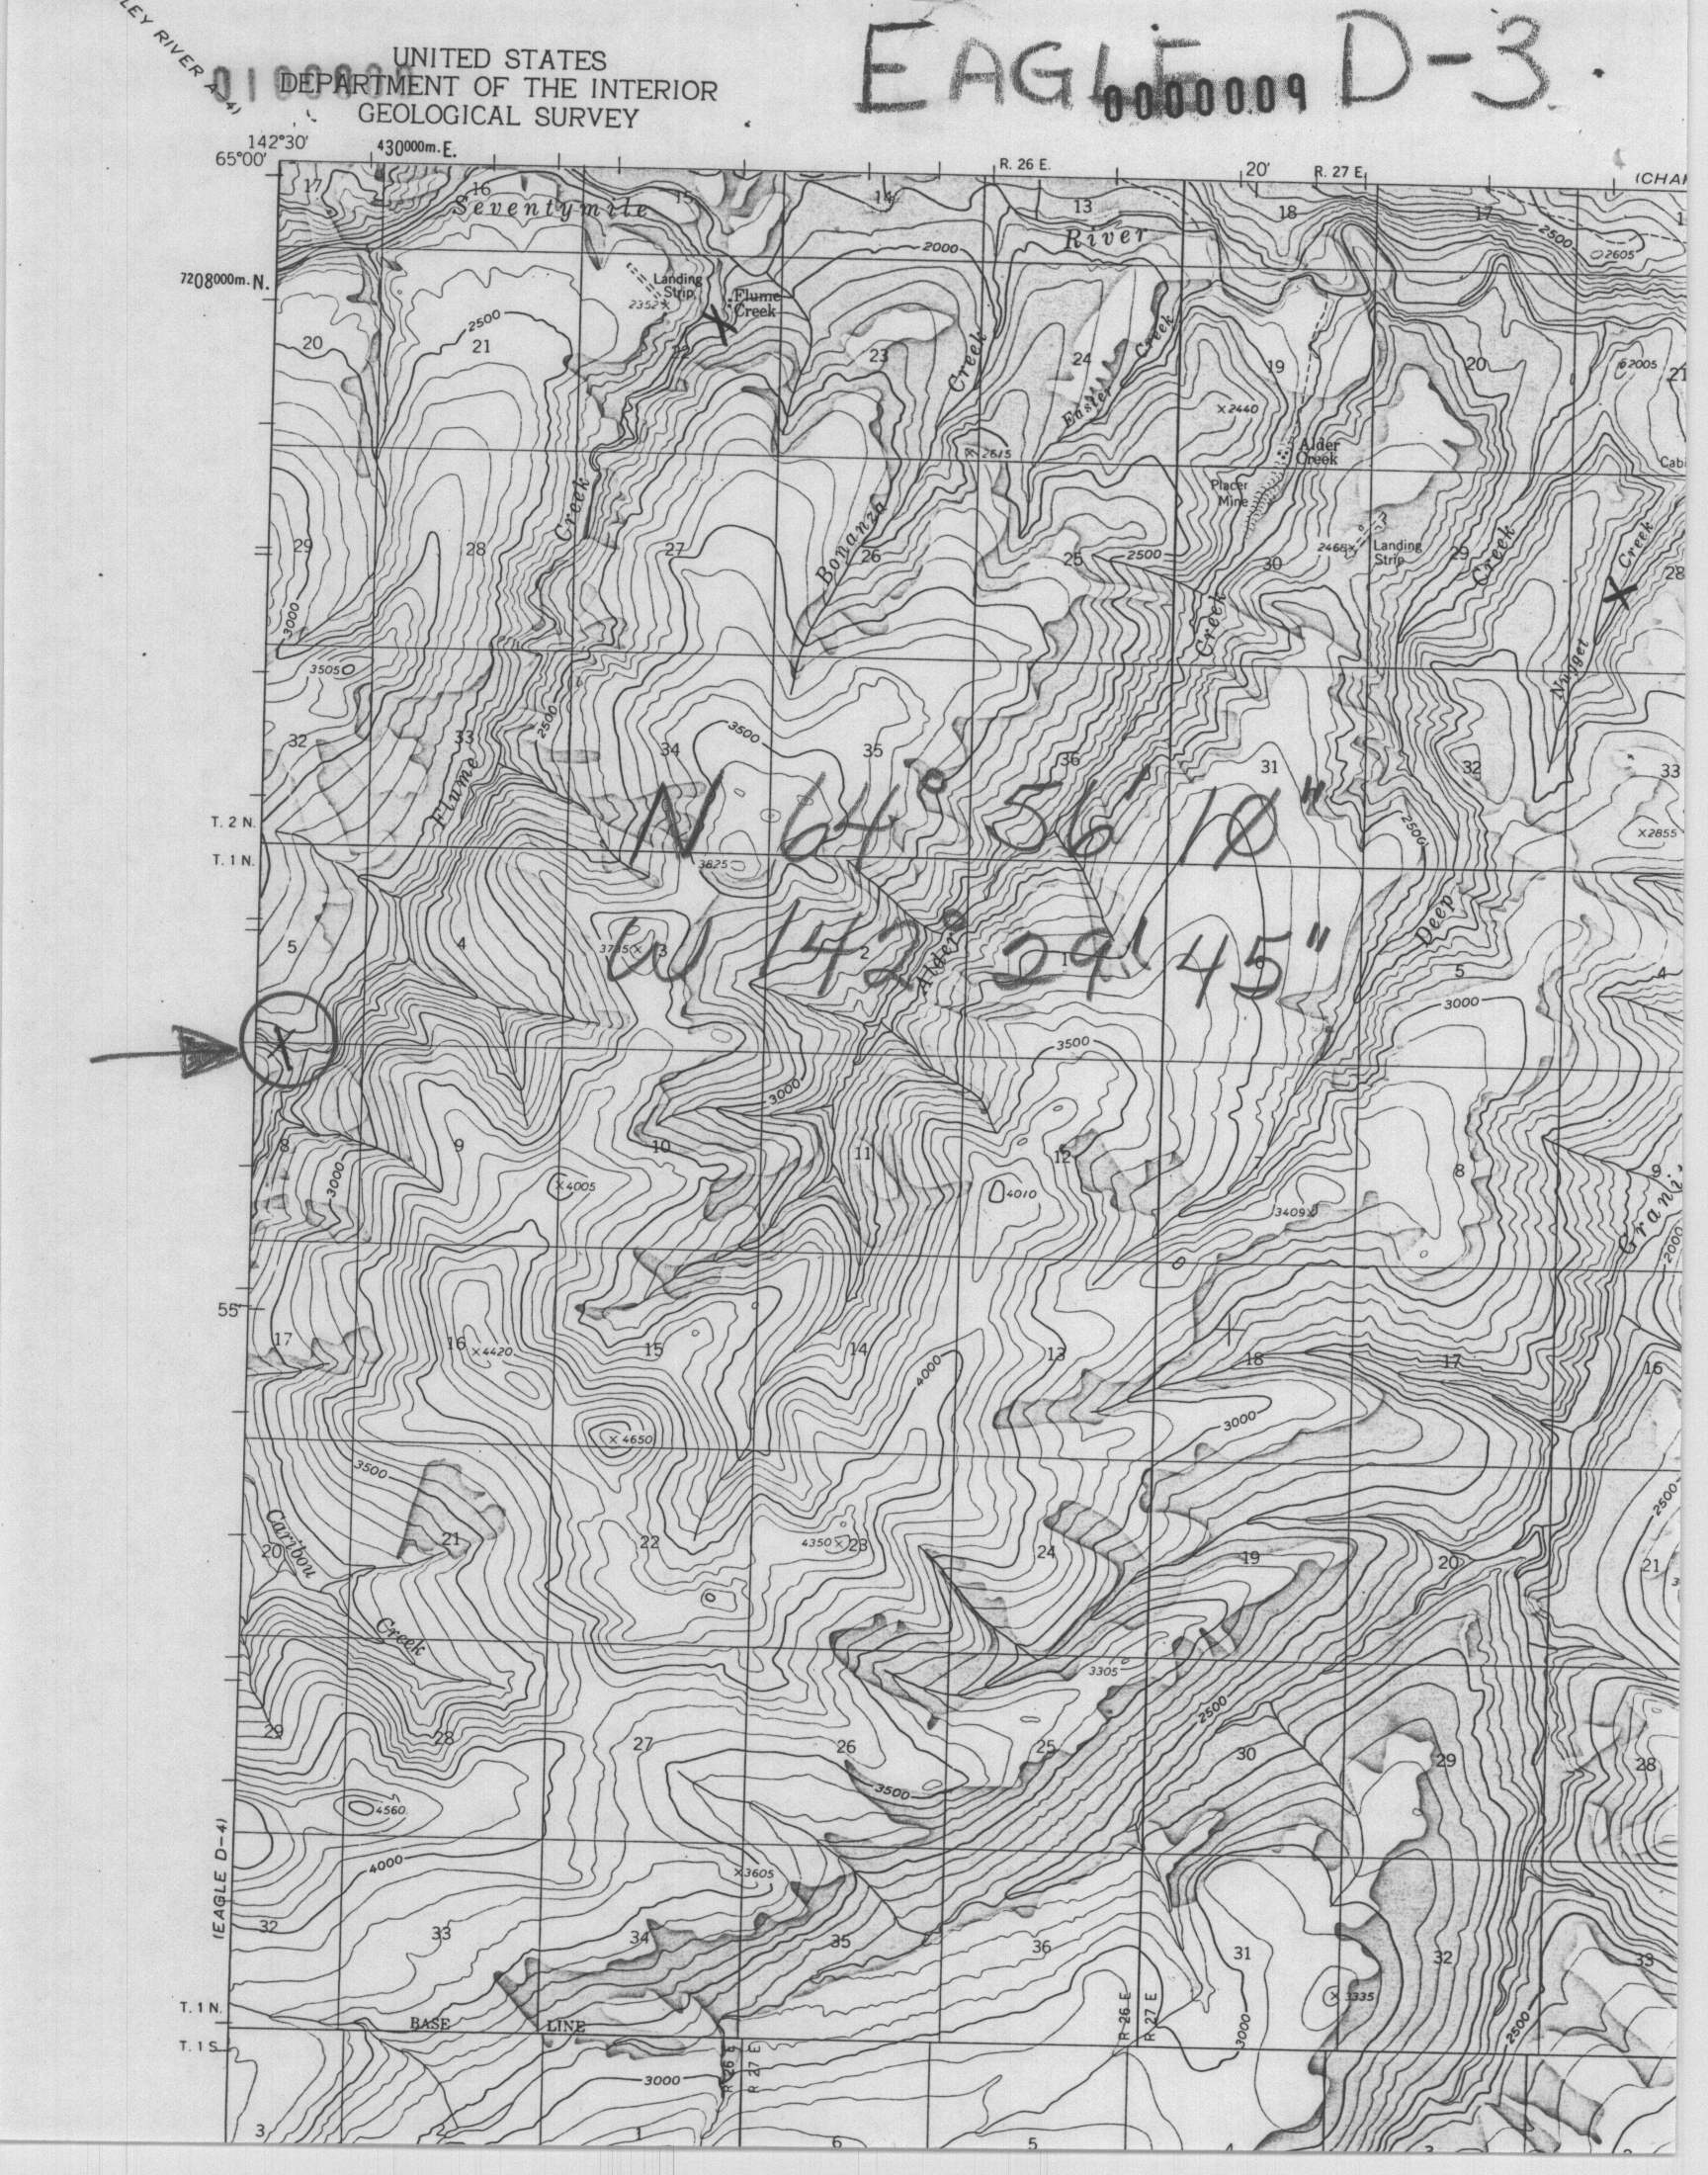 LEY RIVER A-4)
UNITED STATES
DEPARTMENT OF THE INTERIOR
GEOLOGICAL SURVEY
EAGLE D-3.
0000009
142°30'
65°00'
430000m.E.
R. 26 E.
20'
R. 27 E.
(CHA
17
16
15
14
13
18
17
Seventymile
River
2000
2500
2605
7208000m.N.
Landing
Strip
2352
Flume
Creek
2500
20
21
22
23
24
19
20
2005
21
Creek
Easter Creek
2440
2615
Alder
Creek
Placer
Mine
Cab
Creek
Bonanza
29
28
27
26
25
2500
30
2468
Landing
Strip
29
Creek
Creek
28
3000
Creek
3505
Nugget
32
33
2500
34
3500
35
36
31
32
33
Flume
N 64° 56' 10"
2500
2855
T. 2 N.
T. 1 N.
3625
5
4
3
2
1
5
4
W 142° 29' 45"
Alder
Deep
3000
X
3500
3000
8
9
10
11
12
7
8
9
3000
4005
4010
3409
Grani
2000
55'
17
16
4420
15
14
13
18
17
16
4000
3000
4650
3500
2500
Caribou
20
21
22
4350
23
24
19
20
21
Creek
3305
2500
29
28
27
26
25
30
29
28
3500
4560
4000
3605
(EAGLE D-4)
32
33
34
35
36
31
32
33
3335
T. 1 N.
BASE LINE
R 26 E
R 27 E
3000
2500
T. 1 S.
R 26 E
R 27 E
3000
3
2
1
6
5